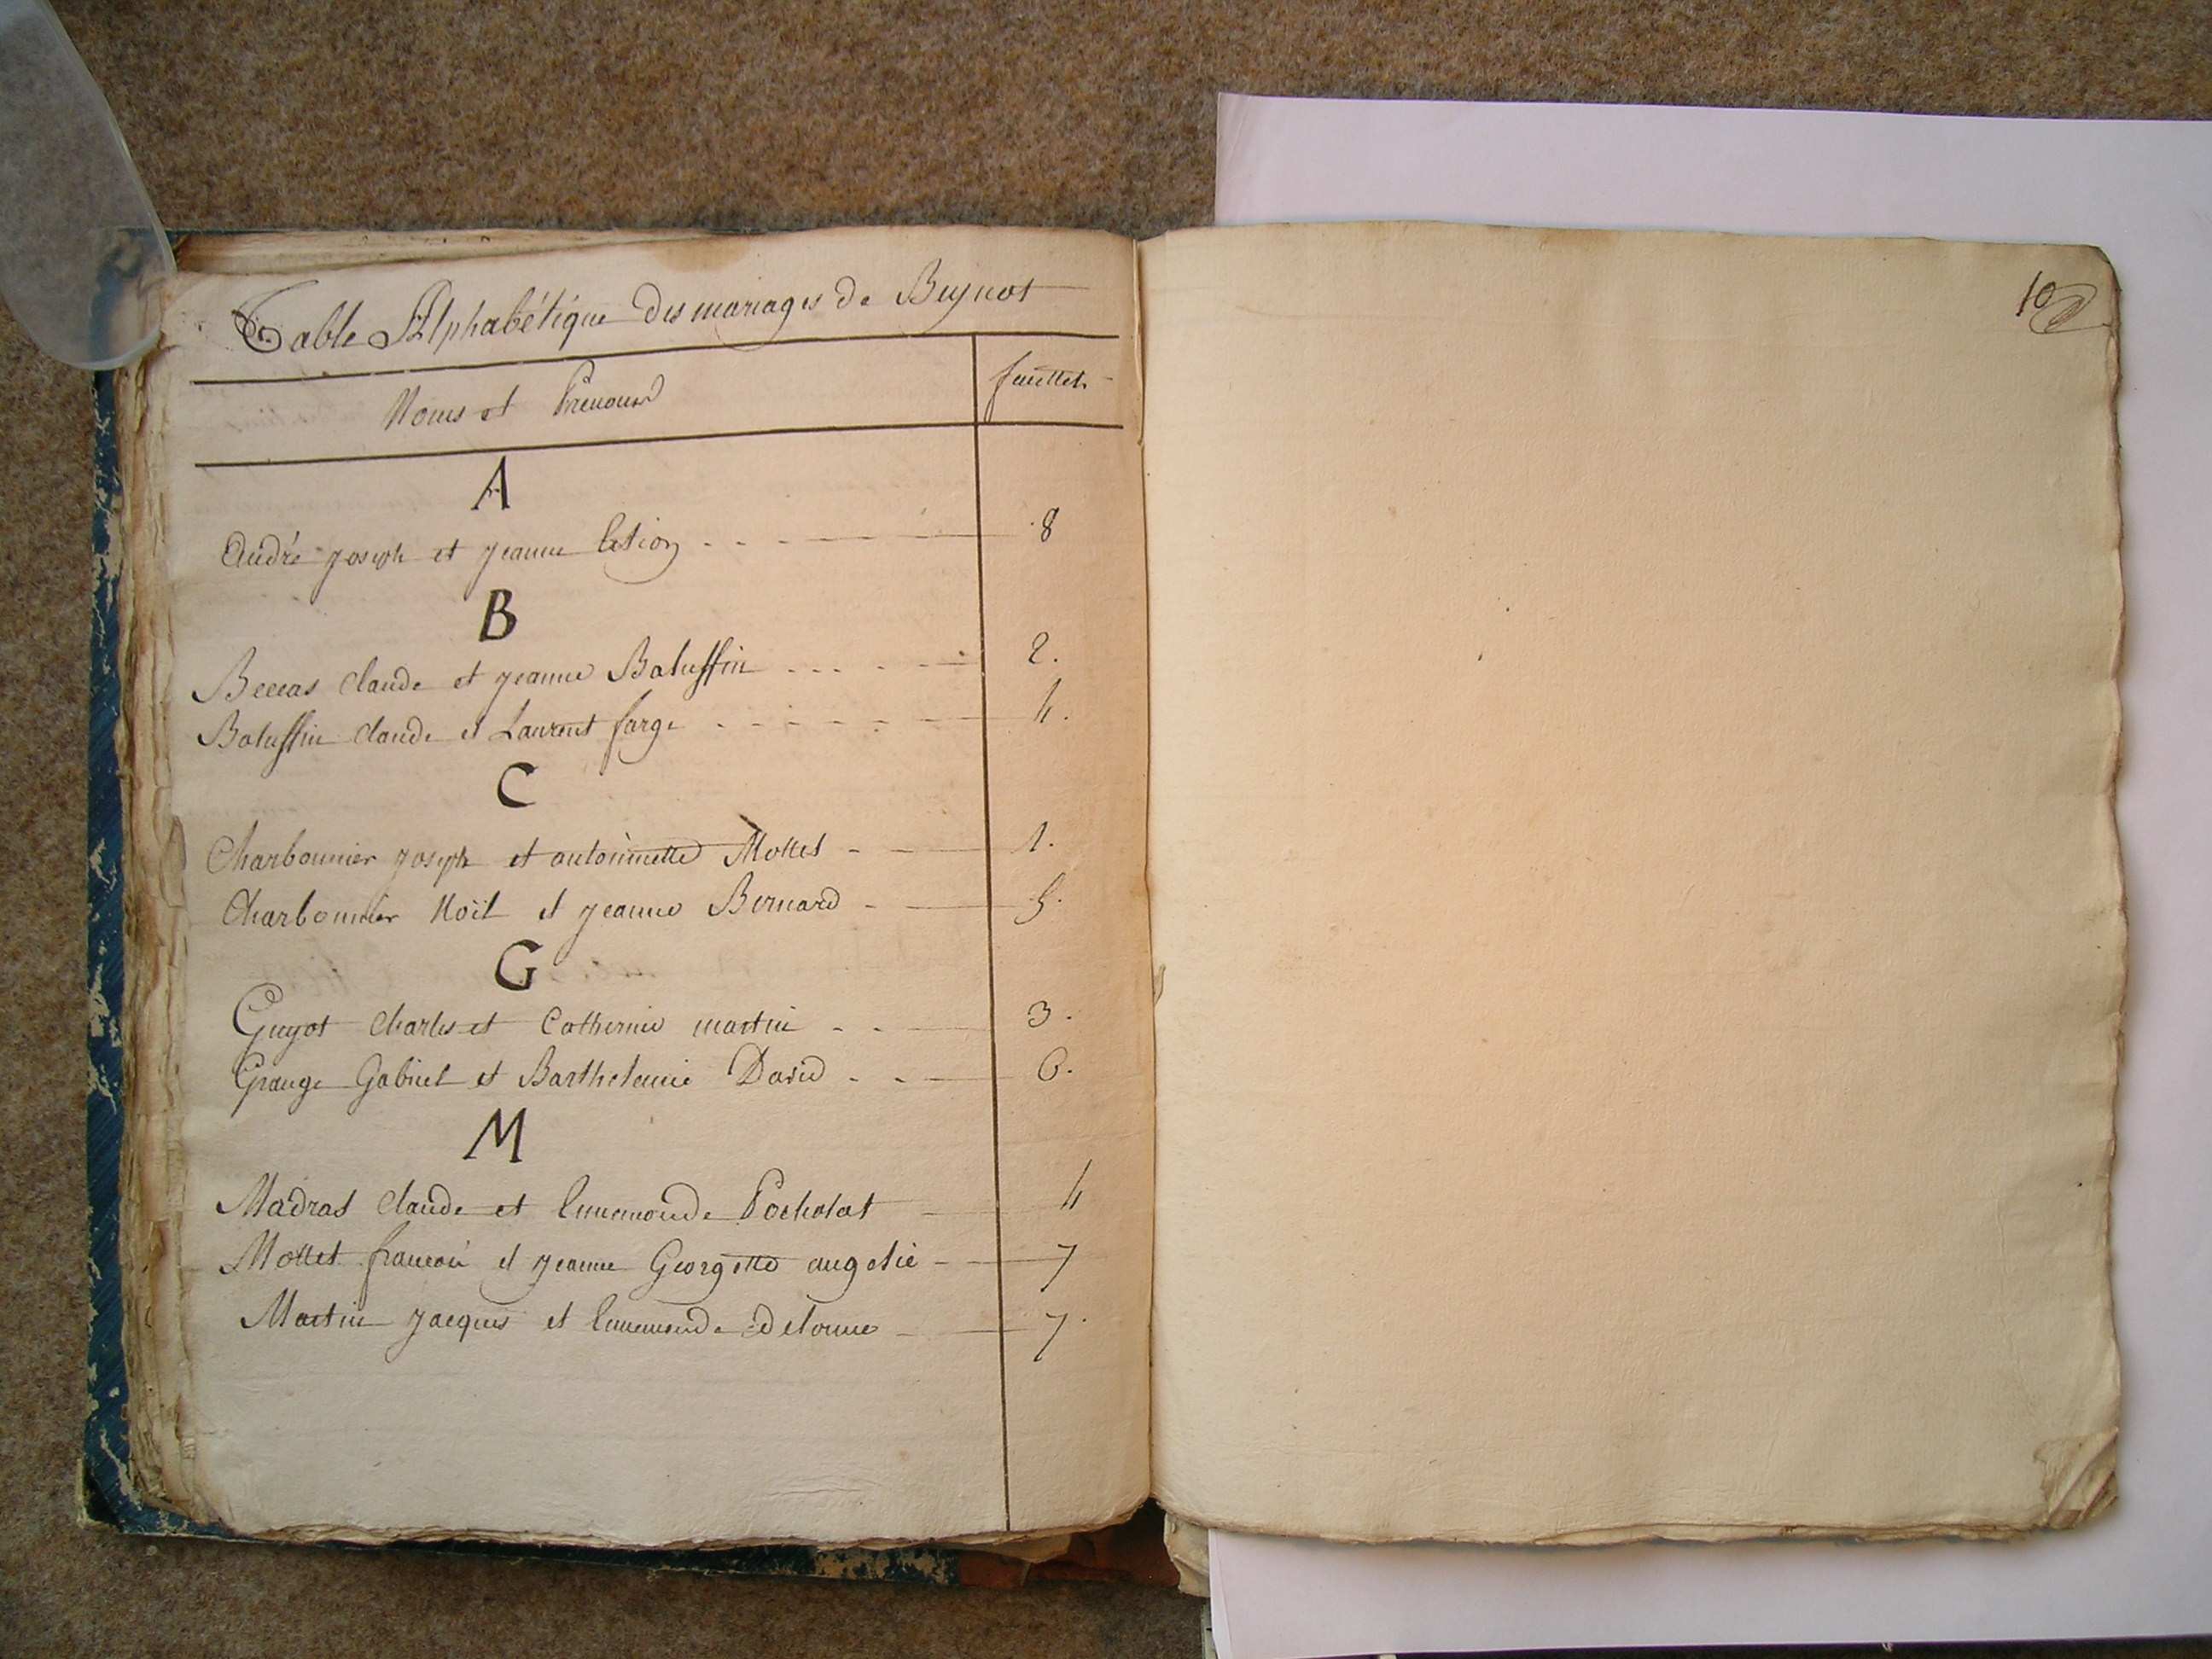 Table Alphabétique des mariages de Beynost
Noms et Prenoms
feuillets
A
André joseph et jeanne 8
B
Beccas claude et jeanne Batuffin 2.
Batuffin claude et Laurent farge 4.
C
Charbonnier joseph et antoinette Mollet 1.
Charbonnier Noël et jeanne Bernard 5.
G
Guyot Charles et Catherine martin 3.
Grange Gabriel et Barthelemie David 6.
M
Madras Claude et Ennemonde Pocholat 4
Mollet francois et jeanne Georgette 7
Martin jacques et Ennemonde delorme 7.
10